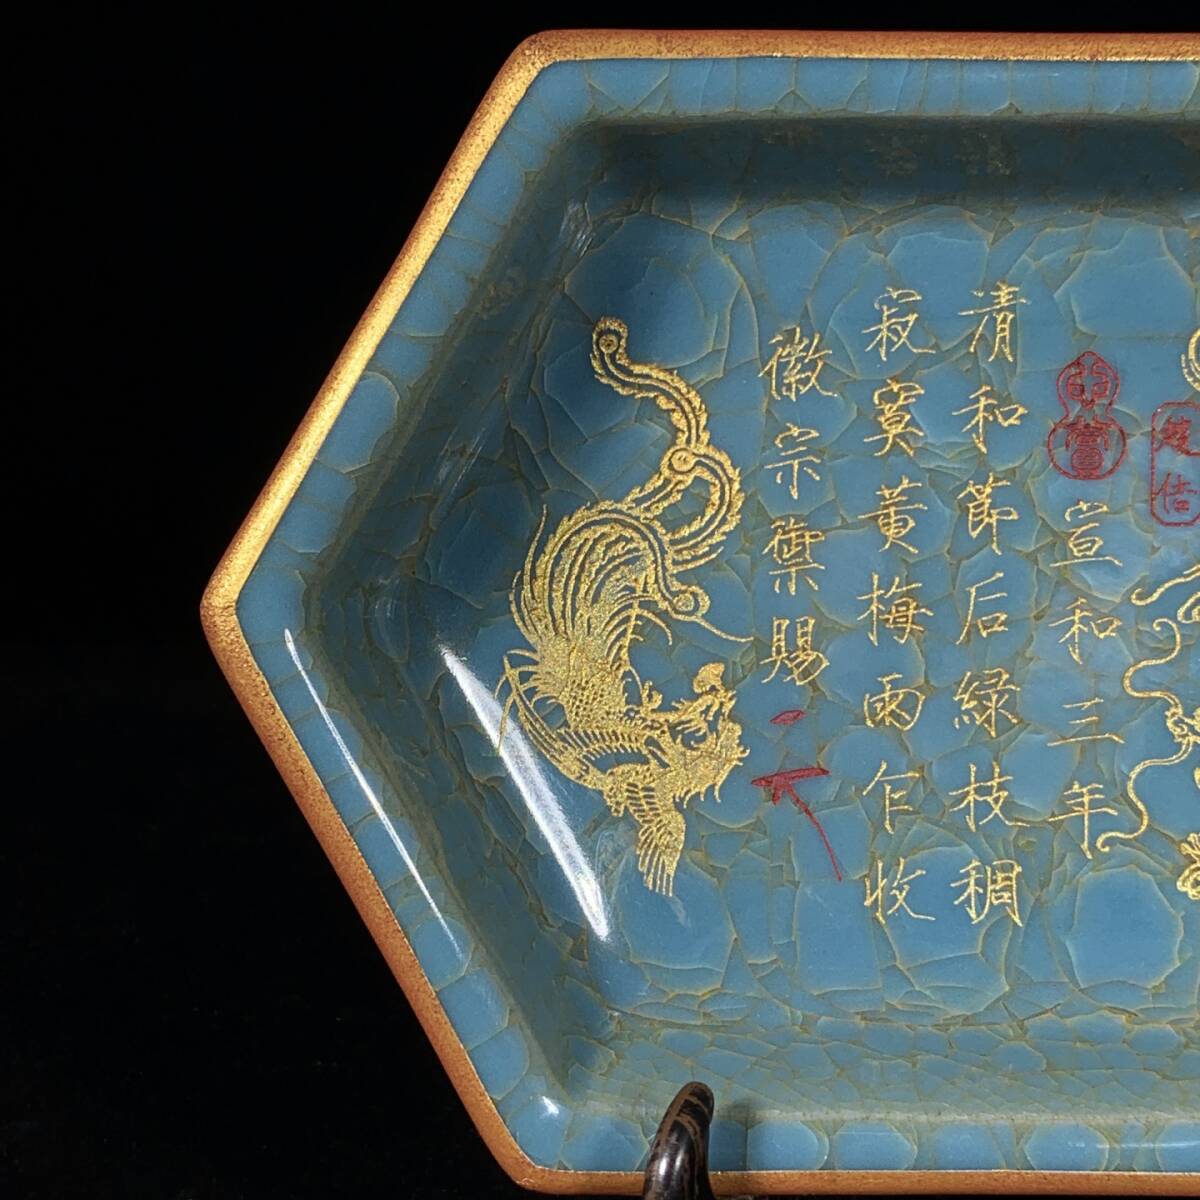 趙佶
宣和三年
清和節后綠枝稠
寂寞黃梅雨乍收
徽宗禦賜